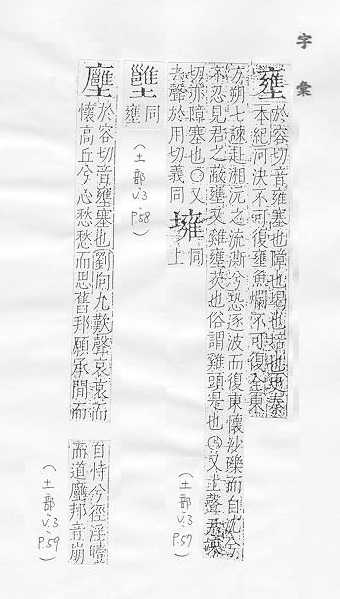 字彙
壅 於容切音雍塞也障也堨也培也史秦
本紀河決不可復壅魚爛不可復全東
方朔七諫赴湘沅之流澌兮恐逐波而復東懷沙礫而自沈兮
不忍見君之蔽壅又雞壅芡也俗謂雞頭是也○又上聲
切亦障塞也○又
去聲於用切義同
同
上
(土部 v.3 p.57)
同
壅
(土部 v.3 p.58)
於容切音壅塞也劉向九歎聲哀哀而
懷高丘兮心愁愁而思舊邦願承間而
自恃兮徑淫曀
而道廱邦音崩
(土部 v.3 p.59)